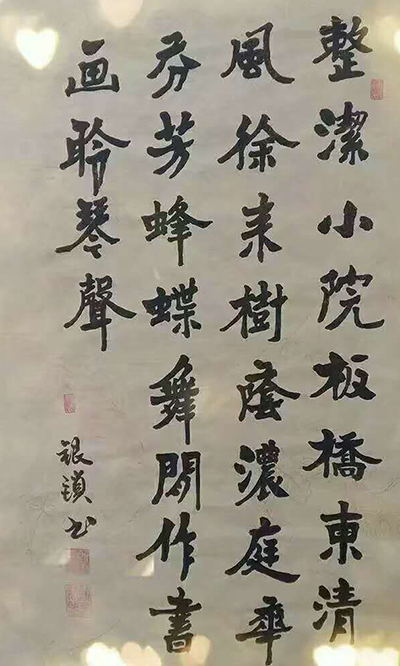 整潔小院板橋東清
風徐来樹蔭濃庭華
芬芳蜂蝶舞閒作書
画聆琴聲
銀鎖书